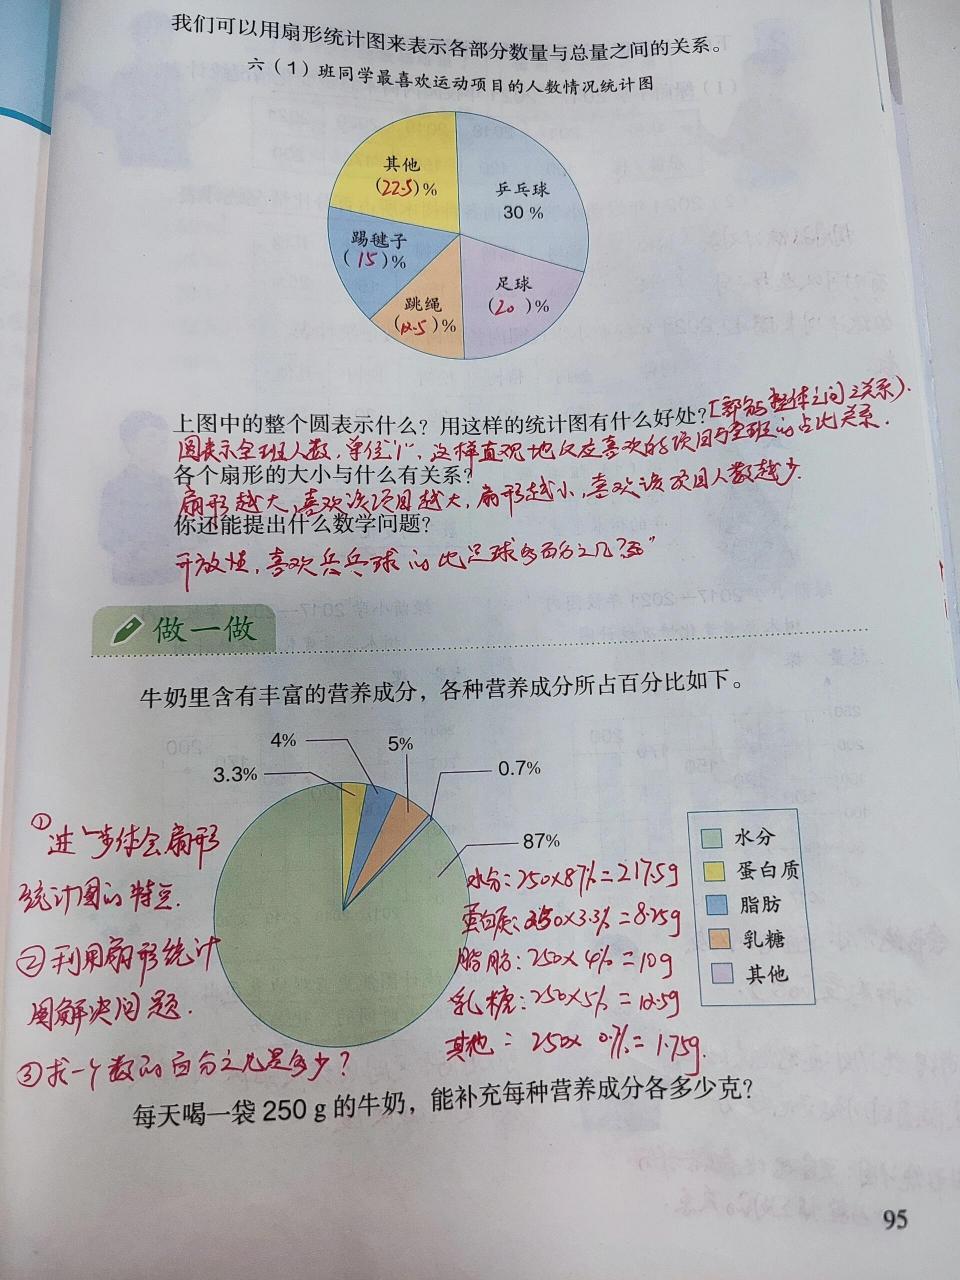 我们可以用扇形统计图来表示各部分数量与总量之间的关系。
六（1）班同学最喜欢运动项目的人数情况统计图
其他
(22.5)%
乒乓球
30 %
踢毽子
( 15 )%
足球
(20 )%
跳绳
(12.5)%
上图中的整个圆表示什么？用这样的统计图有什么好处？[部分与整体之间之关系).
圆表示全班人数，单位"1"，这样直观地反应喜欢的项目与全班的占比关系.
各个扇形的大小与什么有关系？
扇形越大，喜欢该项目越大，扇形越小，喜欢该项目人数越少.
你还能提出什么数学问题？
开放性，喜欢兵乓球的比足球多百分之几？
做一做
牛奶里含有丰富的营养成分，各种营养成分所占百分比如下。
4%
5%
3.3%
0.7%
87%
水分
蛋白质
脂肪
乳糖
其他
①进一步体会扇形
统计图的特点.
②利用扇形统计
图解决问题.
③求一个数的百分之几是多少？
水分：250×87%=217.5g
蛋白质：250×3.3%=8.25g
脂肪：250×4%=10g
乳糖：250×5%=12.5g
其他：250×0.7%=1.75g.
每天喝一袋 250 g 的牛奶，能补充每种营养成分各多少克？
95